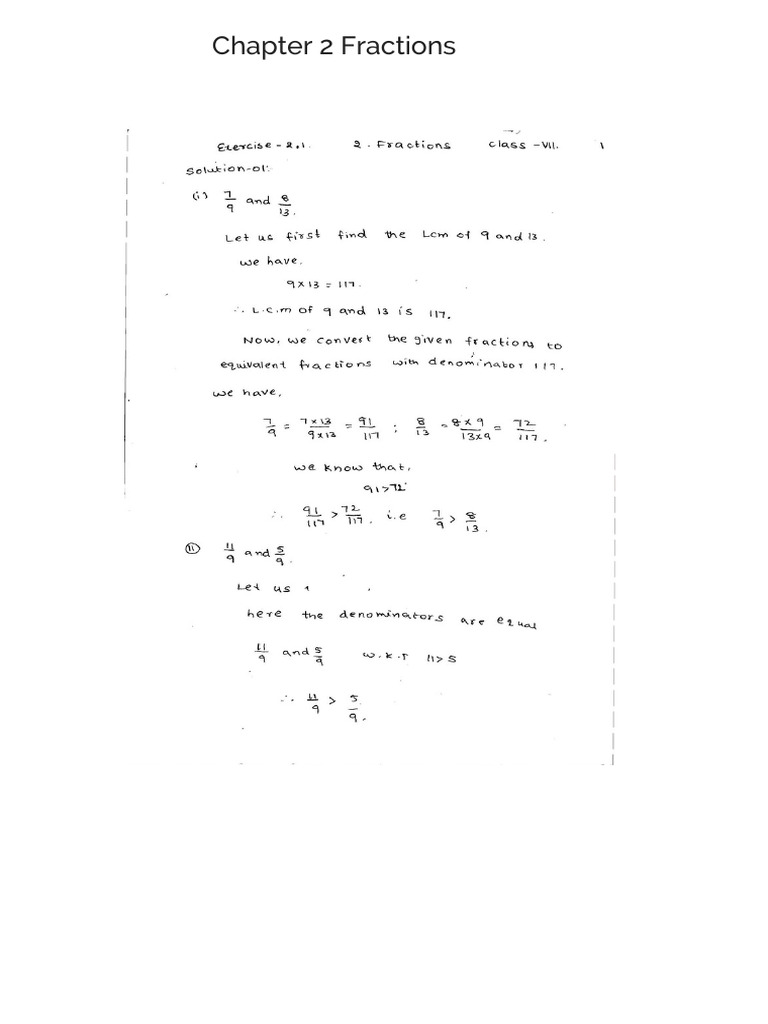 Chapter 2 Fractions
Exercise-2.1. 2. Fractions class -VII. 1
Solution-01:
(i) 7/9 and 8/13.
Let us first find the Lcm of 9 and 13.
we have.
9x13 = 117.
∴ L.c.m of 9 and 13 is 117.
Now, we convert the given fractions to
equivalent fractions with denominator 117.
we have,
7/9 = 7x13/9x13 = 91/117 ; 8/13 = 8x9/13x9 = 72/117.
we know that,
91>72
∴ 91/117 > 72/117. i.e 7/9 > 8/13.
(ii) 11/9 and 5/9.
Let us
here the denominators are equal
11/9 and 5/9 w.k.T 11>5
∴ 11/9 > 5/9.